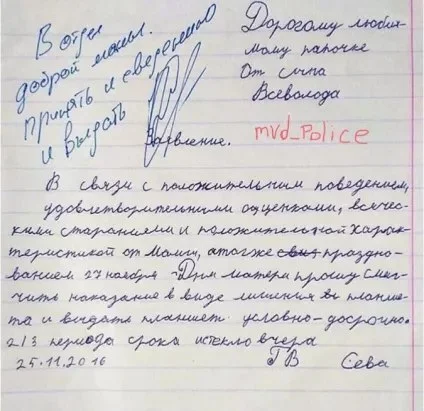 В отдел
доброй мамы.
Принять к сведению
и выдать
Дорогому любим-
мому папочке
От сына
Всеволода
Заявление.
mvd_Police
В связи с положительным поведением,
удовлетворительными оценками, всячес-
кими стараниями и положительной харак-
теристикой от Мамы, а также праздно-
ванием 27 ноября - Дня матери прошу смяг-
чить наказание в виде лишения планше-
та и выдать планшет условно-досрочно.
2/3 периода срока истекло вчера
25.11.2016
ГВ Сева